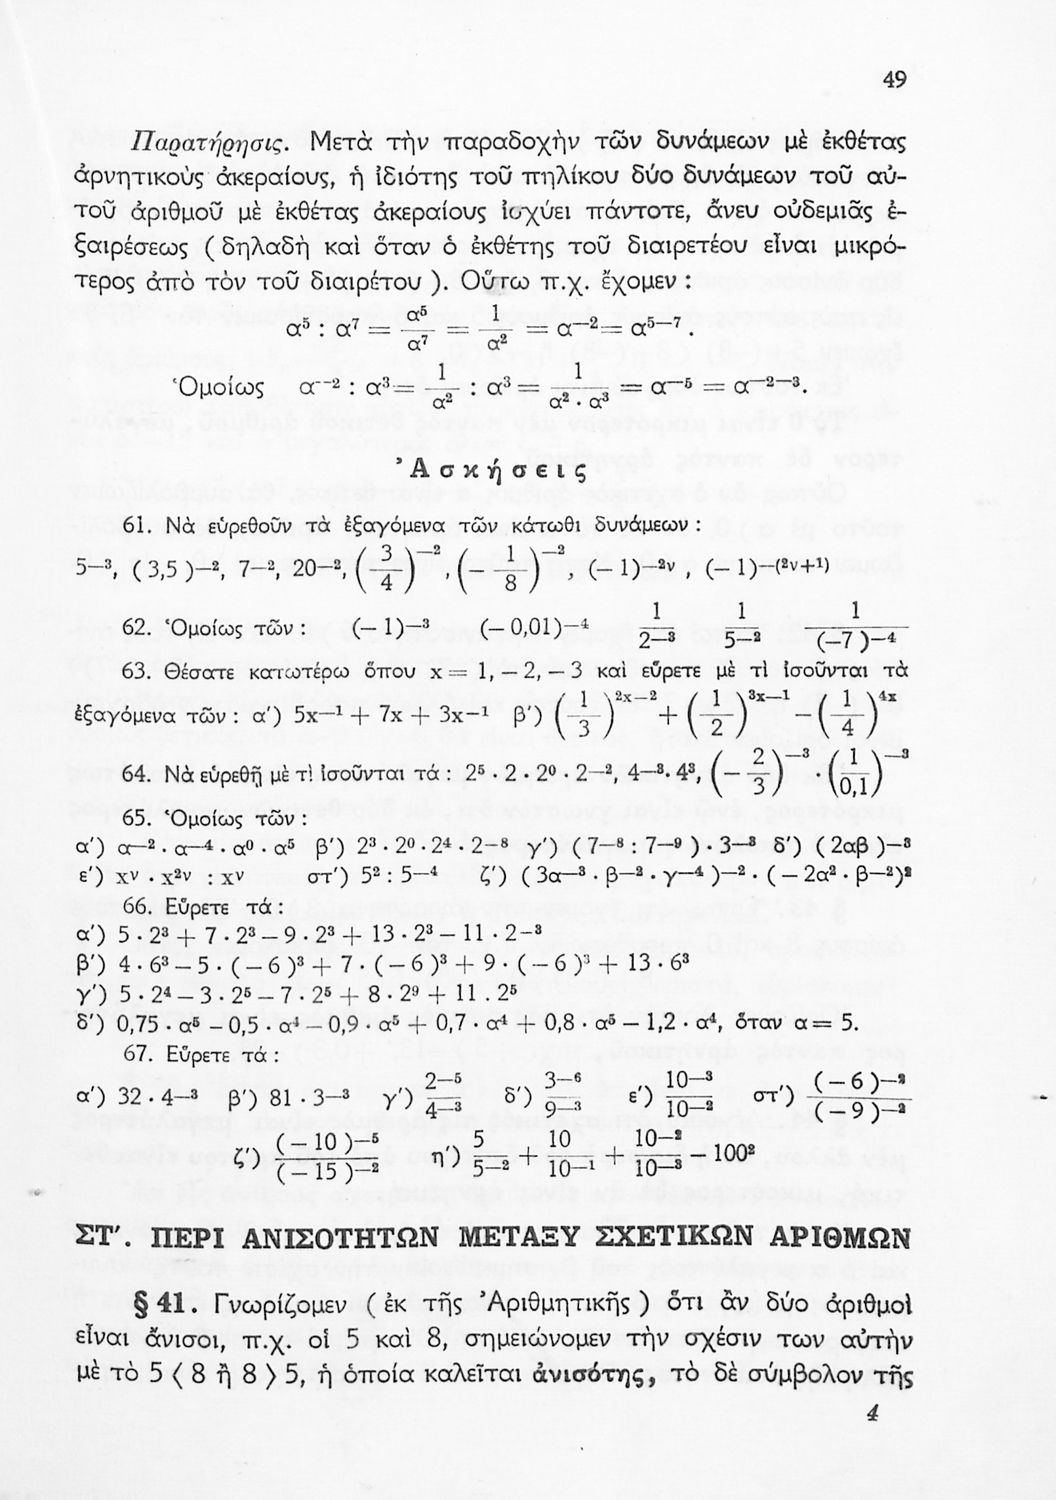 49
Παρατήρησις. Μετὰ τὴν παραδοχὴν τῶν δυνάμεων μὲ ἐκθέτας
ἀρνητικοὺς ἀκεραίους, ἡ ἰδιότης τοῦ πηλίκου δύο δυνάμεων τοῦ αὐ-
τοῦ ἀριθμοῦ μὲ ἐκθέτας ἀκεραίους ἰσχύει πάντοτε, ἄνευ οὐδεμιᾶς ἐ-
ξαιρέσεως ( δηλαδὴ καὶ ὅταν ὁ ἐκθέτης τοῦ διαιρετέου εἶναι μικρό-
τερος ἀπὸ τὸν τοῦ διαιρέτου ). Οὕτω π.χ. ἔχομεν :
α⁵ : α⁷ = α⁵/α⁷ = 1/α² = α⁻² = α⁵⁻⁷ .
Ὁμοίως α⁻² : α³ = 1/α² : α³ = 1/(α² . α³) = α⁻⁵ = α⁻²⁻³.
Ἀσκήσεις
61. Νὰ εὑρεθοῦν τὰ ἐξαγόμενα τῶν κάτωθι δυνάμεων :
5⁻³, ( 3,5 )⁻², 7⁻², 20⁻², (3/4)⁻² , (− 1/8)⁻², (− 1)⁻²ᵛ , (− 1)⁻⁽²ᵛ⁺¹⁾
62. Ὁμοίως τῶν : (− 1)⁻³ (− 0,01)⁻⁴ 1/2⁻³ 1/5⁻² 1/(−7 )⁻⁴
63. Θέσατε κατωτέρω ὅπου x = 1, − 2, − 3 καὶ εὕρετε μὲ τὶ ἰσοῦνται τὰ
ἐξαγόμενα τῶν : α′) 5x⁻¹ + 7x + 3x⁻¹ β′) (1/3)²ˣ⁻² + (1/2)³ˣ⁻¹ − (1/4)⁴ˣ
64. Νὰ εὑρεθῇ μὲ τὶ ἰσοῦνται τά : 2⁵ · 2 · 2⁰ · 2⁻², 4⁻³· 4³, (− 2/3)⁻³ · (1/0,1)⁻³
65. Ὁμοίως τῶν :
α′) α⁻² . α⁻⁴ . α⁰ · α⁵ β′) 2³ · 2⁰ · 2⁴ · 2⁻⁸ γ′) ( 7⁻⁸ : 7⁻⁹ ) · 3⁻³ δ′) ( 2αβ )⁻³
ε′) xᵛ . x²ᵛ : xᵛ στ′) 5² : 5⁻⁴ ζ′) ( 3α⁻³ · β⁻² · γ⁻⁴ )⁻² · ( − 2α² · β⁻²)²
66. Εὕρετε τά :
α′) 5 · 2³ + 7 · 2³ − 9 · 2³ + 13 · 2³ − 11 · 2⁻³
β′) 4 · 6³ − 5 · ( − 6 )³ + 7 · ( − 6 )³ + 9 · ( − 6 )³ + 13 · 6³
γ′) 5 · 2⁴ − 3 · 2⁵ − 7 · 2⁵ + 8 · 2⁹ + 11 . 2⁵
δ′) 0,75 · α⁵ − 0,5 · α⁴ − 0,9 · α⁵ + 0,7 · α⁴ + 0,8 · α⁵ − 1,2 · α⁴, ὅταν α = 5.
67. Εὕρετε τά :
α′) 32 . 4⁻³ β′) 81 · 3⁻³ γ′) 2⁻⁵/4⁻³ δ′) 3⁻⁶/9⁻³ ε′) 10⁻³/10⁻² στ′) ( − 6 )⁻²/( − 9 )⁻²
ζ′) ( − 10 )⁻⁵/( − 15 )⁻² η′) 5/5⁻² + 10/10⁻¹ + 10⁻²/10⁻³ − 100²
ΣΤ′. ΠΕΡΙ ΑΝΙΣΟΤΗΤΩΝ ΜΕΤΑΞΥ ΣΧΕΤΙΚΩΝ ΑΡΙΘΜΩΝ
§ 41. Γνωρίζομεν ( ἐκ τῆς Ἀριθμητικῆς ) ὅτι ἂν δύο ἀριθμοὶ
εἶναι ἄνισοι, π.χ. οἱ 5 καὶ 8, σημειώνομεν τὴν σχέσιν των αὐτὴν
μὲ τὸ 5 ⟨ 8 ἢ 8 ⟩ 5, ἡ ὁποία καλεῖται ἀνισότης, τὸ δὲ σύμβολον τῆς
4